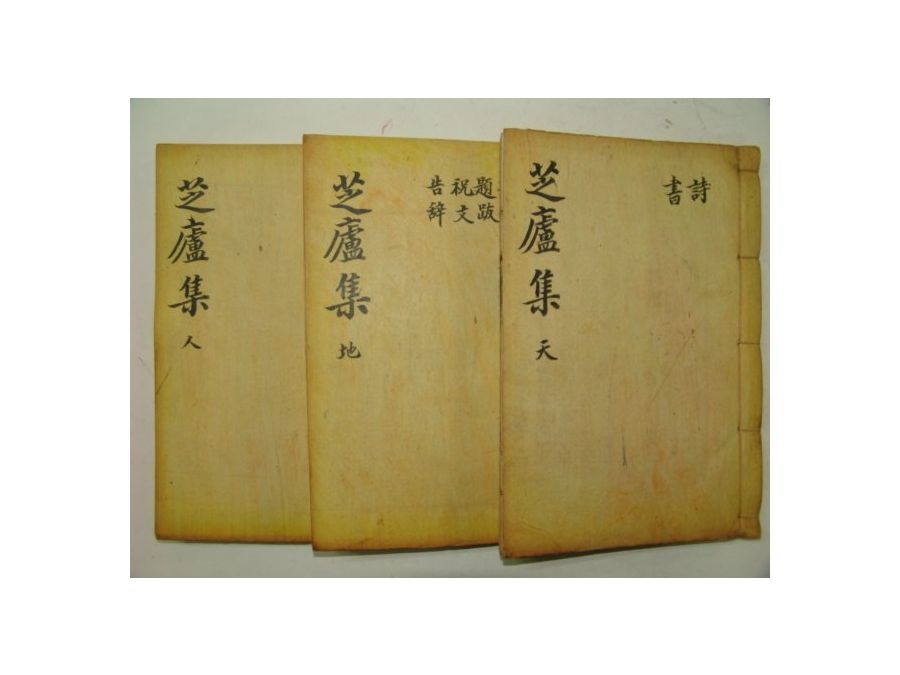 詩
書
芝廬集
天
題跋
祝文
告辞
芝廬集
地
芝廬集
人